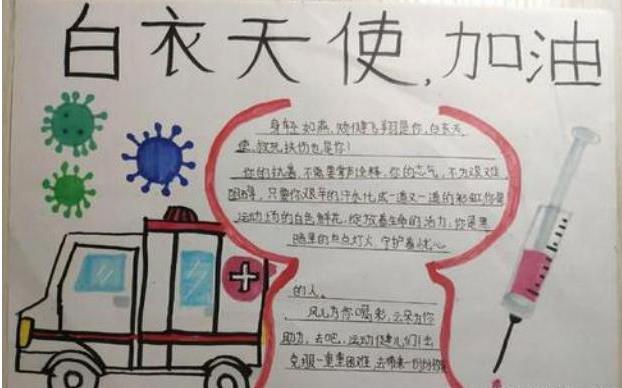 白衣天使,加油
身轻如燕,矫健飞翔是你,白衣天
使,救死扶伤也是你!
你的执着,不需要掌声诠释,你的志气,不为艰难
困,只要你艰辛的汗水化成一道又一道的彩虹,你是
运动场的白色鲜花,绽放着生命的活力,你是黑
暗里的点点灯火,守护着忧心
的人。
风儿为你喝彩,云朵为你
助力,去吧,运动健儿们!去
克服一重重困难,去带来一份份